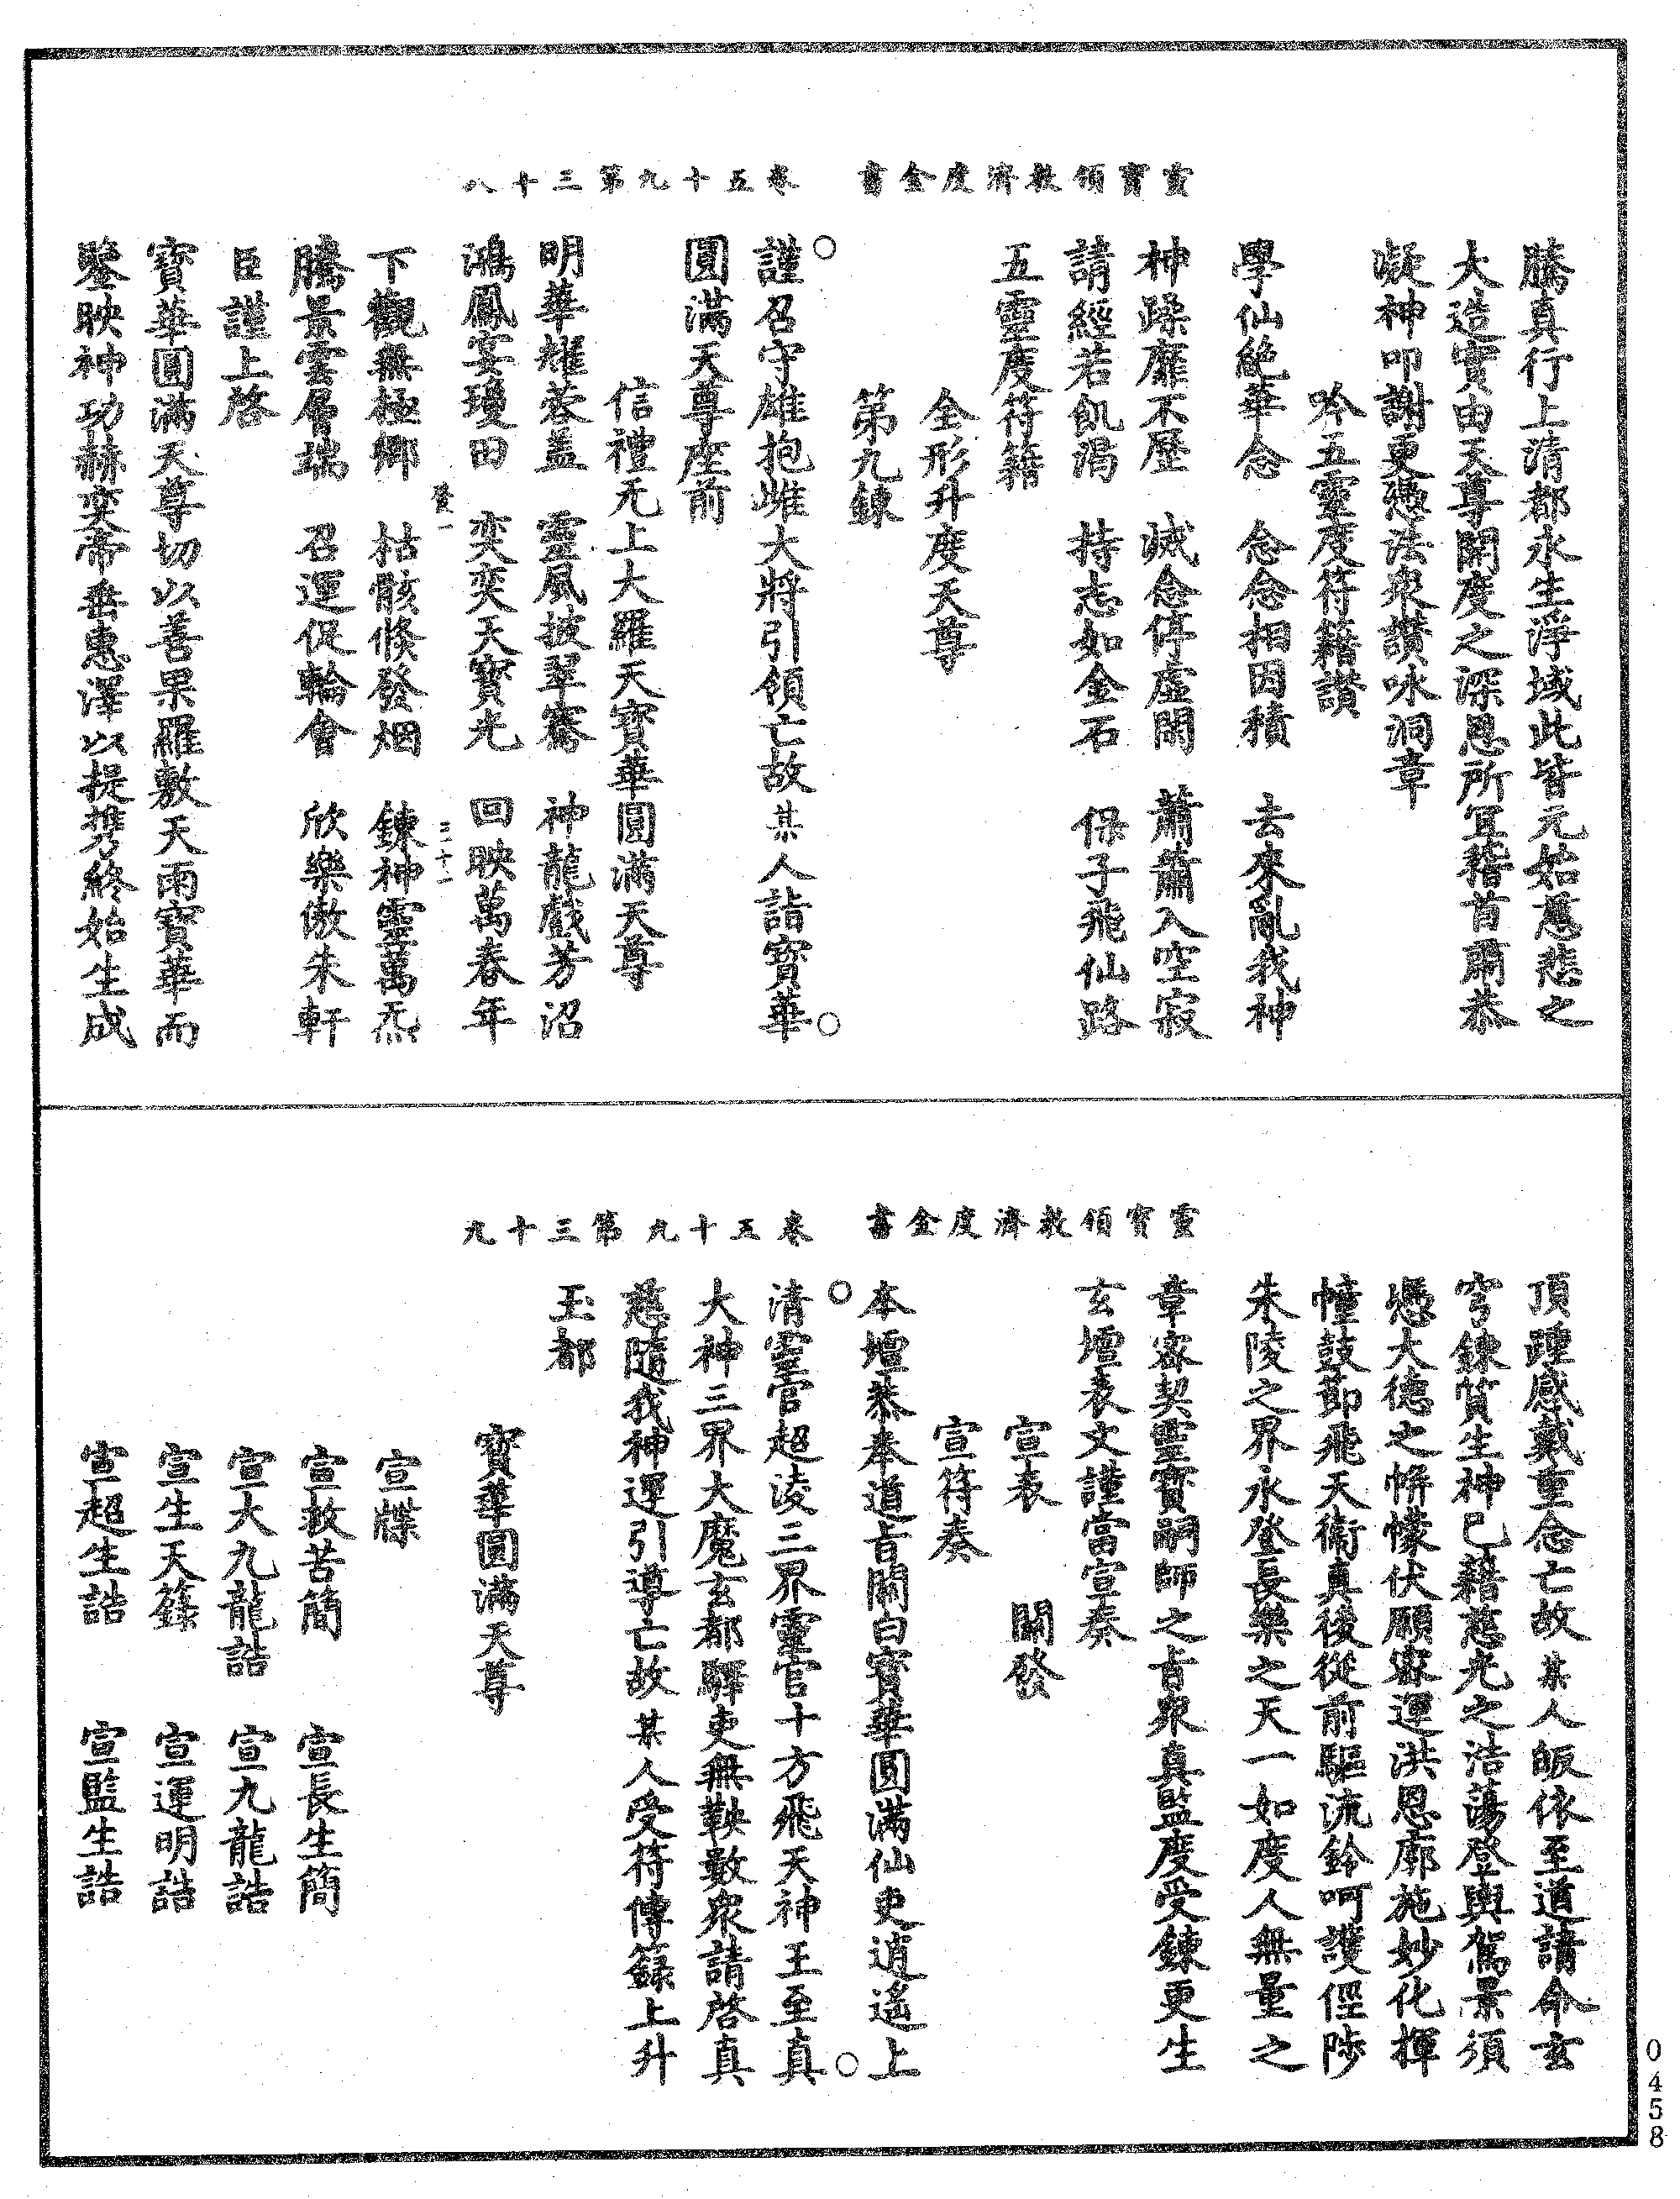 靈寶領教濟度金書　卷五十九第三十八
騰真行上清都永生淨域此皆元始慈悲之
大造實由天尊開度之深恩所宜稽首爾恭
凝神叩謝更憑法衆讚咏洞章
吟五靈度符籍讚
學仙絕華念　念念相因積　去來亂我神
神躁靡不歷　滅念停虛閑　蕭蕭入空寂
請經若飢渴　持志如金石　保子飛仙路
五靈度符籍
全形升度天尊
第九鍊
○謹召守雄抱雌大將引領亡故某人詣寶華○
圓滿天尊座前
信禮无上大羅天寶華圓滿天尊
明華耀蓉蓋　靈風披翠騫　神龍戲芳沼
鴻鳳宴瓊田　奕奕天寶光　回映萬春年
下觀無極鄉　枯骸倏發烟　鍊神靈萬炁
騰景雲層端　召運促輪會　欣樂傲朱軒
臣謹上啓
寶華圓滿天尊切以善果羅敷天雨寶華而
鑒映神功赫奕帝垂惠澤以提携終始生成
靈寶領教濟度金書　卷五十九第三十九
頂踵感戴重念亡故某人皈依至道請命玄
穹鍊質生神已藉慈光之浩蕩登輿駕景須
憑大德之帡幪伏願密運洪恩廓施妙化揮
幢鼓節飛天衛真後從前驅流鈴呵護徑陟
朱陵之界永登長樂之天一如度人無量之
章密契靈寶嗣師之旨衆真監度受鍊更生
玄壇表文謹當宣奏
宣表　關發
宣符奏
本壇恭奉道旨關白寶華圓滿仙吏逍遙上
○清靈官超淩三界靈官十方飛天神王至真○
大神三界大魔玄都驛吏無鞅數衆請啓真
慈隨我神運引導亡故某人受符傳籙上升
玉都
寶華圓滿天尊
宣牒
宣救苦簡　宣長生簡
宣大九龍誥　宣九龍誥
宣生天籙　宣運明誥
宣超生誥　宣監生誥
0458